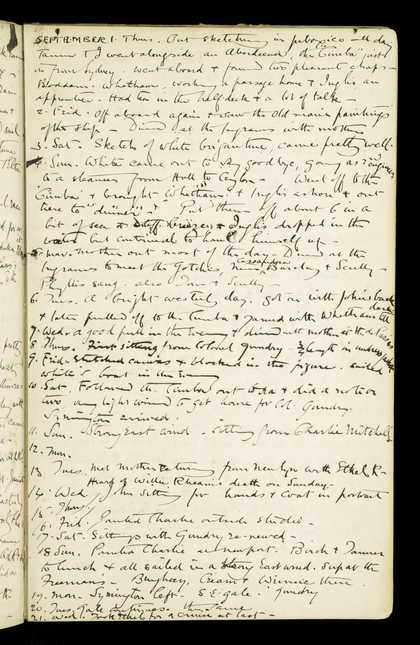 SEPTEMBER 1. Thus. Out sketching in
Tanner & I went alongside an Aberdeen the "Cimba" just
in from Sydney. went aboard & found two pleasant chaps -
Whethams, working a passage home & Inglis an
apprentice. Had tea in the half deck & a lot of talk -
2. Frid. Off aboard again & saw the Old man's paintings
of the ships - Dined at the Ingrams with mother
3. Sat. Sketch of white brigantine, came pretty well.
4. Sun. White came out to say goodbye, going as
to a steamer from Hull to Ceylon - Went off to the
"Cimba" & brought "Whetham" & Inglis ashore & out
here to "dinner" - Put them off about 6 in a
bit of sea & Inglis dropped in the
water but contrived to haul himself up -
5. mother out most of the day. Dined at the
Ingrams to meet the Gotches, & Scully -
Phyllis sang. also & Scully -
6. Tues. A bright westerly day. got on with John's back
& later pulled off to the Cimba & yarned with Whetham
7. Wed. a good pull in the & dined with mother at the
8. Thurs. First sitting from Colonel Gundry. 3/4 length in
9. Frid. stretched canvas & blocked in the figure. sailed
White's boat in the
10. Sat. Followed the Cimba out to sea & did a note or
two any light wind to get home for Col. Gundry.
Symington arrived.
11. Sun. Strong East wind. sitting from Charlie Mitchell
12. Mon.
13. Tues. met mother returning from Newlyn with Ethel. R -
Heard of Willie death on Sunday -
14. Wed. John sitting for hands & coat in portrait
15. Thurs
16. Frid. Painted Charlie outside studio -
17. Sat. Sittings with Gundry re-newed -
18. Sun. Painted Charlie Birch & Tanner
to lunch & all sailed in a strong East wind. Sup at the
Freemans - & Winnie there.
19. Mon. Symington left. S.E. gale. Gundry
20. Tues. Gale the same
21. Wed. for a cruise at last -